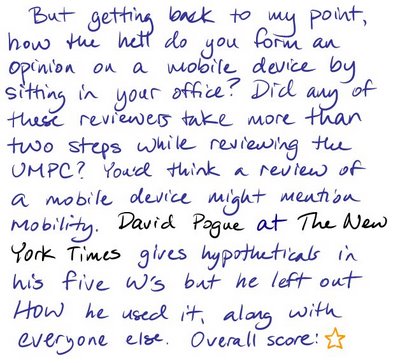 But getting back to my point,
how the hell do you form an
opinion on a mobile device by
sitting in your office? Did any of
these reviewers take more than
two steps while reviewing the
UMPC? You'd think a review of
a mobile device might mention
mobility. David Pogue at The New
York Times gives hypotheticals in
his five W's but he left out
HOW he used it, along with
everyone else. Overall score: ☆